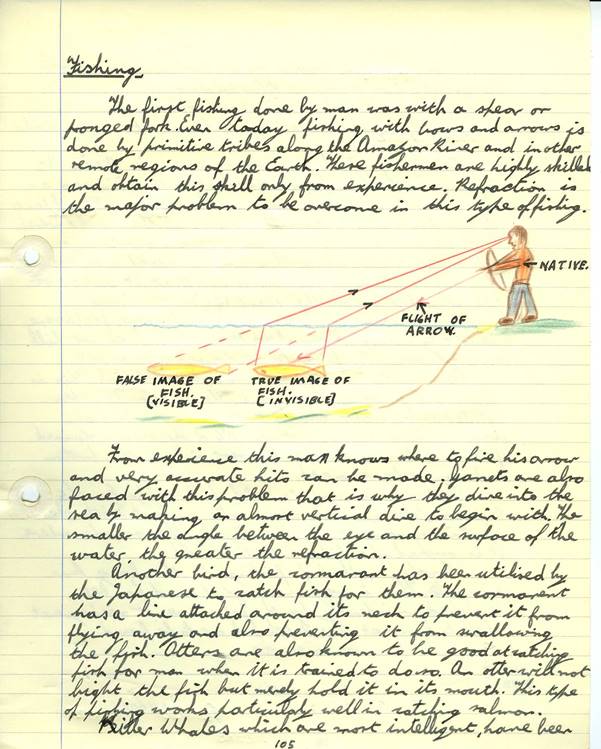 Fishing.
The first fishing done by man was with a spear or
ponged fork. Even today fishing with bows and arrows is
done by primitive tribes along the Amazon River and in other
remote regions of the Earth. These fishermen are highly skilled
and obtain this skill only from experience. Refraction is
the major problem to be overcome in this type of fishing.
NATIVE.
FLIGHT OF
ARROW.
FALSE IMAGE OF
FISH.
[VISIBLE]
TRUE IMAGE OF
FISH.
[INVISIBLE]
From experience this man knows where to fire his arrow
and very accurate hits can be made. Ganets are also
faced with this problem that is why they dive into the
sea by making an almost vertical dive to begin with. The
smaller the angle between the eye and the surface of the
water, the greater the refraction.
Another bird, the cormarant has been utilised by
the Japanese to catch fish for them. The cormorent
has a line attached around its neck to prevent it from
flying away and also preventing it from swallowing
the fish. Otters are also known to be good at catching
fish for man when it is trained to do so. An otter will not
bight the fish but merely hold it in its mouth. This type
of fishing works particularly well in catching salmon.
Killer Whales which are most intelligent, have been
105